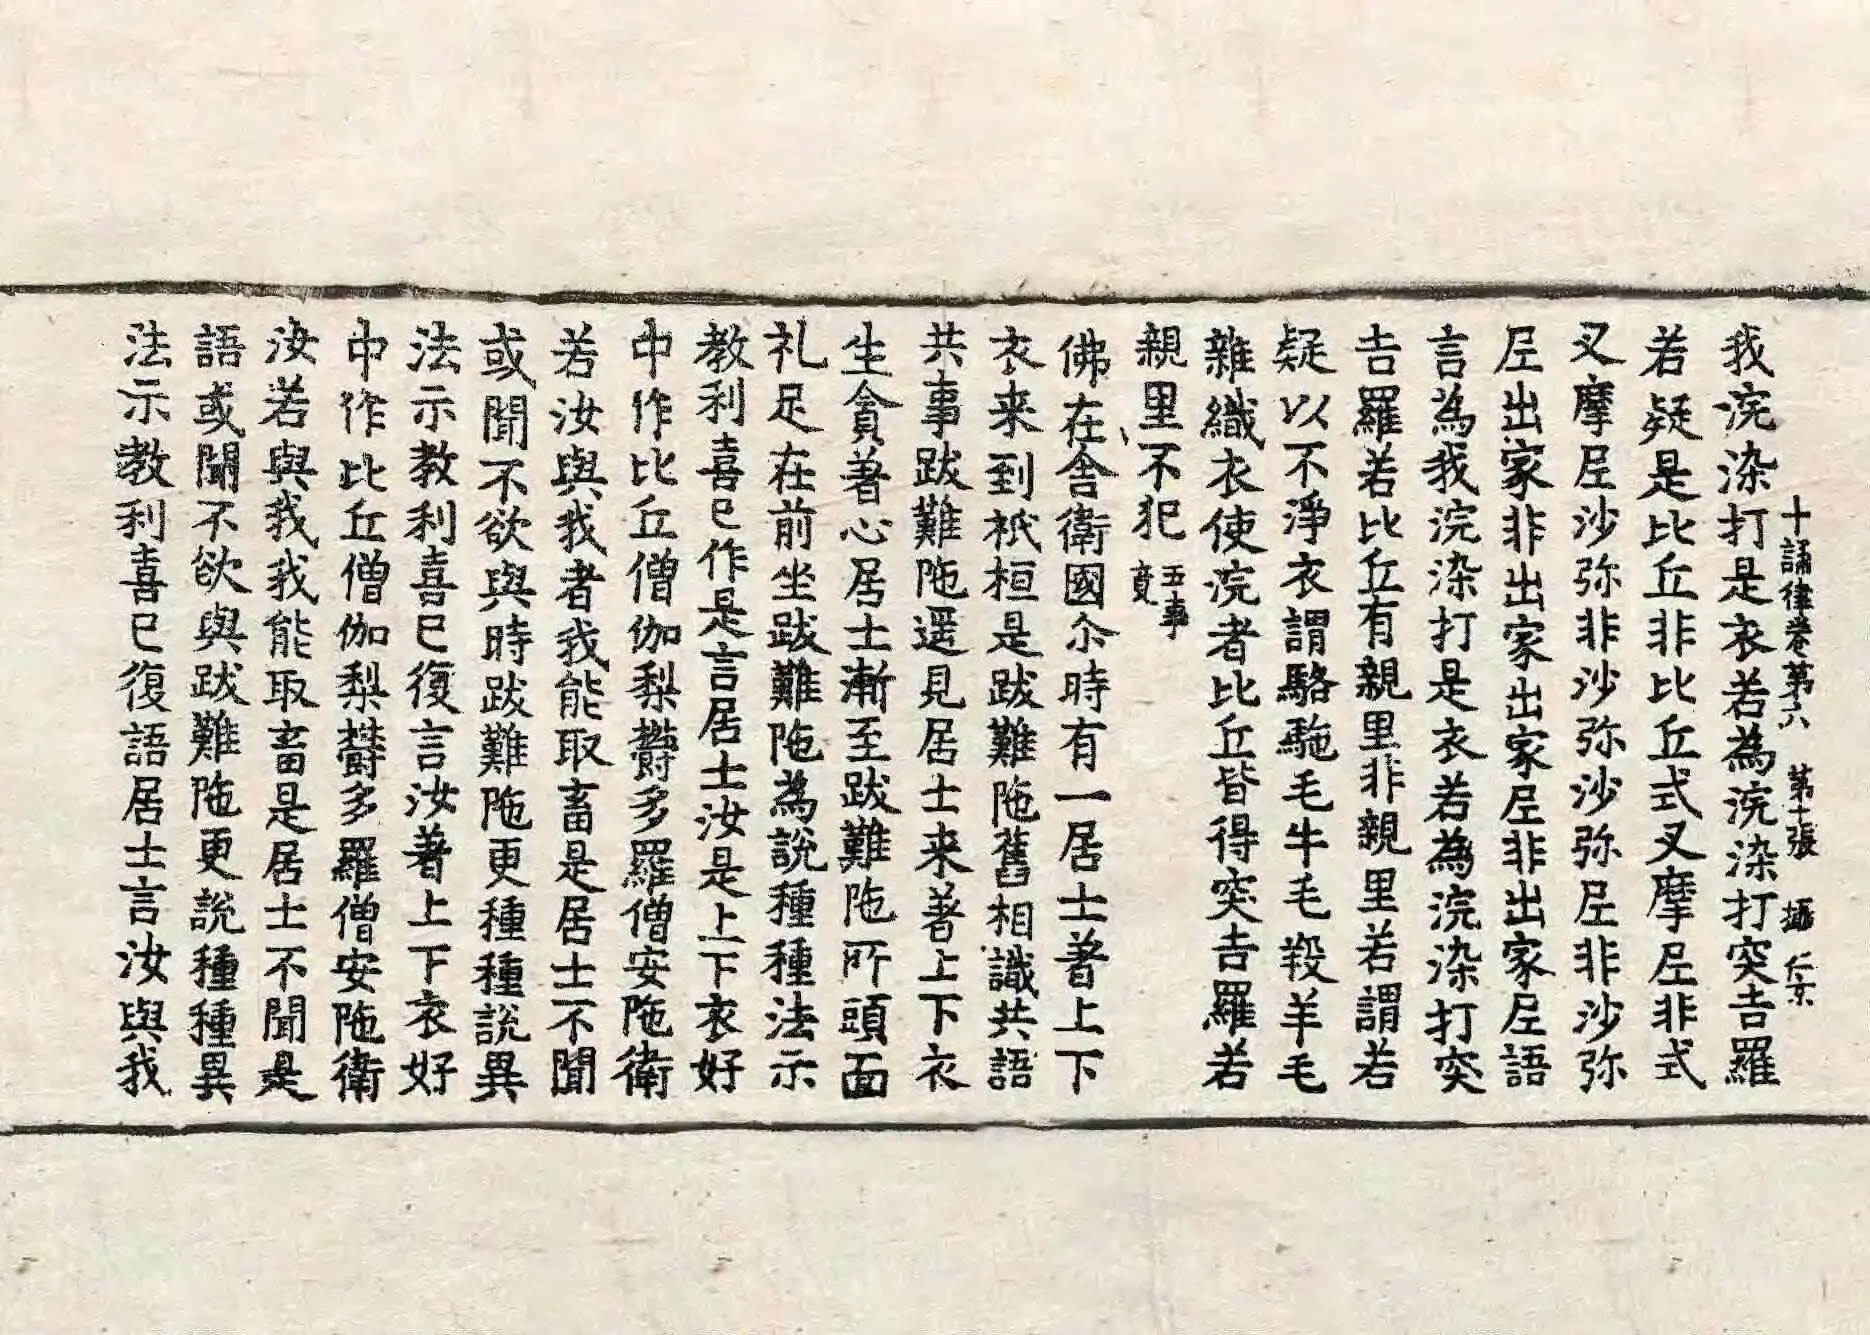 十誦律卷第六 第十張 攝 仁
我浣染打是衣若為浣染打突吉羅
若疑是比丘非比丘式叉摩尼非式
叉摩尼沙弥非沙弥沙弥尼非沙弥
尼出家非出家出家尼非出家尼語
言為我浣染打是衣若為浣染打突
吉羅若比丘有親里非親里若謂若
疑以不淨衣謂駱駞毛牛毛羖羊毛
雜織衣使浣者比丘皆得突吉羅若
親里不犯 五事竟
佛在舍衛國尒時有一居士著上下
衣来到祇桓是跋難陁舊相識共語
共事跋難陁遥見居士来著上下衣
生貪著心居士漸至跋難陁所頭面
礼足在前坐跋難陁為說種種法示
教利喜已作是言居士汝是上下衣好
中作比丘僧伽梨欝多羅僧安陁衛
若汝與我者我能取畜是居士不聞
或聞不欲與時跋難陁更種種說異
法示教利喜已復言汝著上下衣好
中作比丘僧伽梨欝多羅僧安陁衛
汝若與我我能取畜是居士不聞是
語或聞不欲與跋難陁更說種種異
法示教利喜已復語居士言汝與我